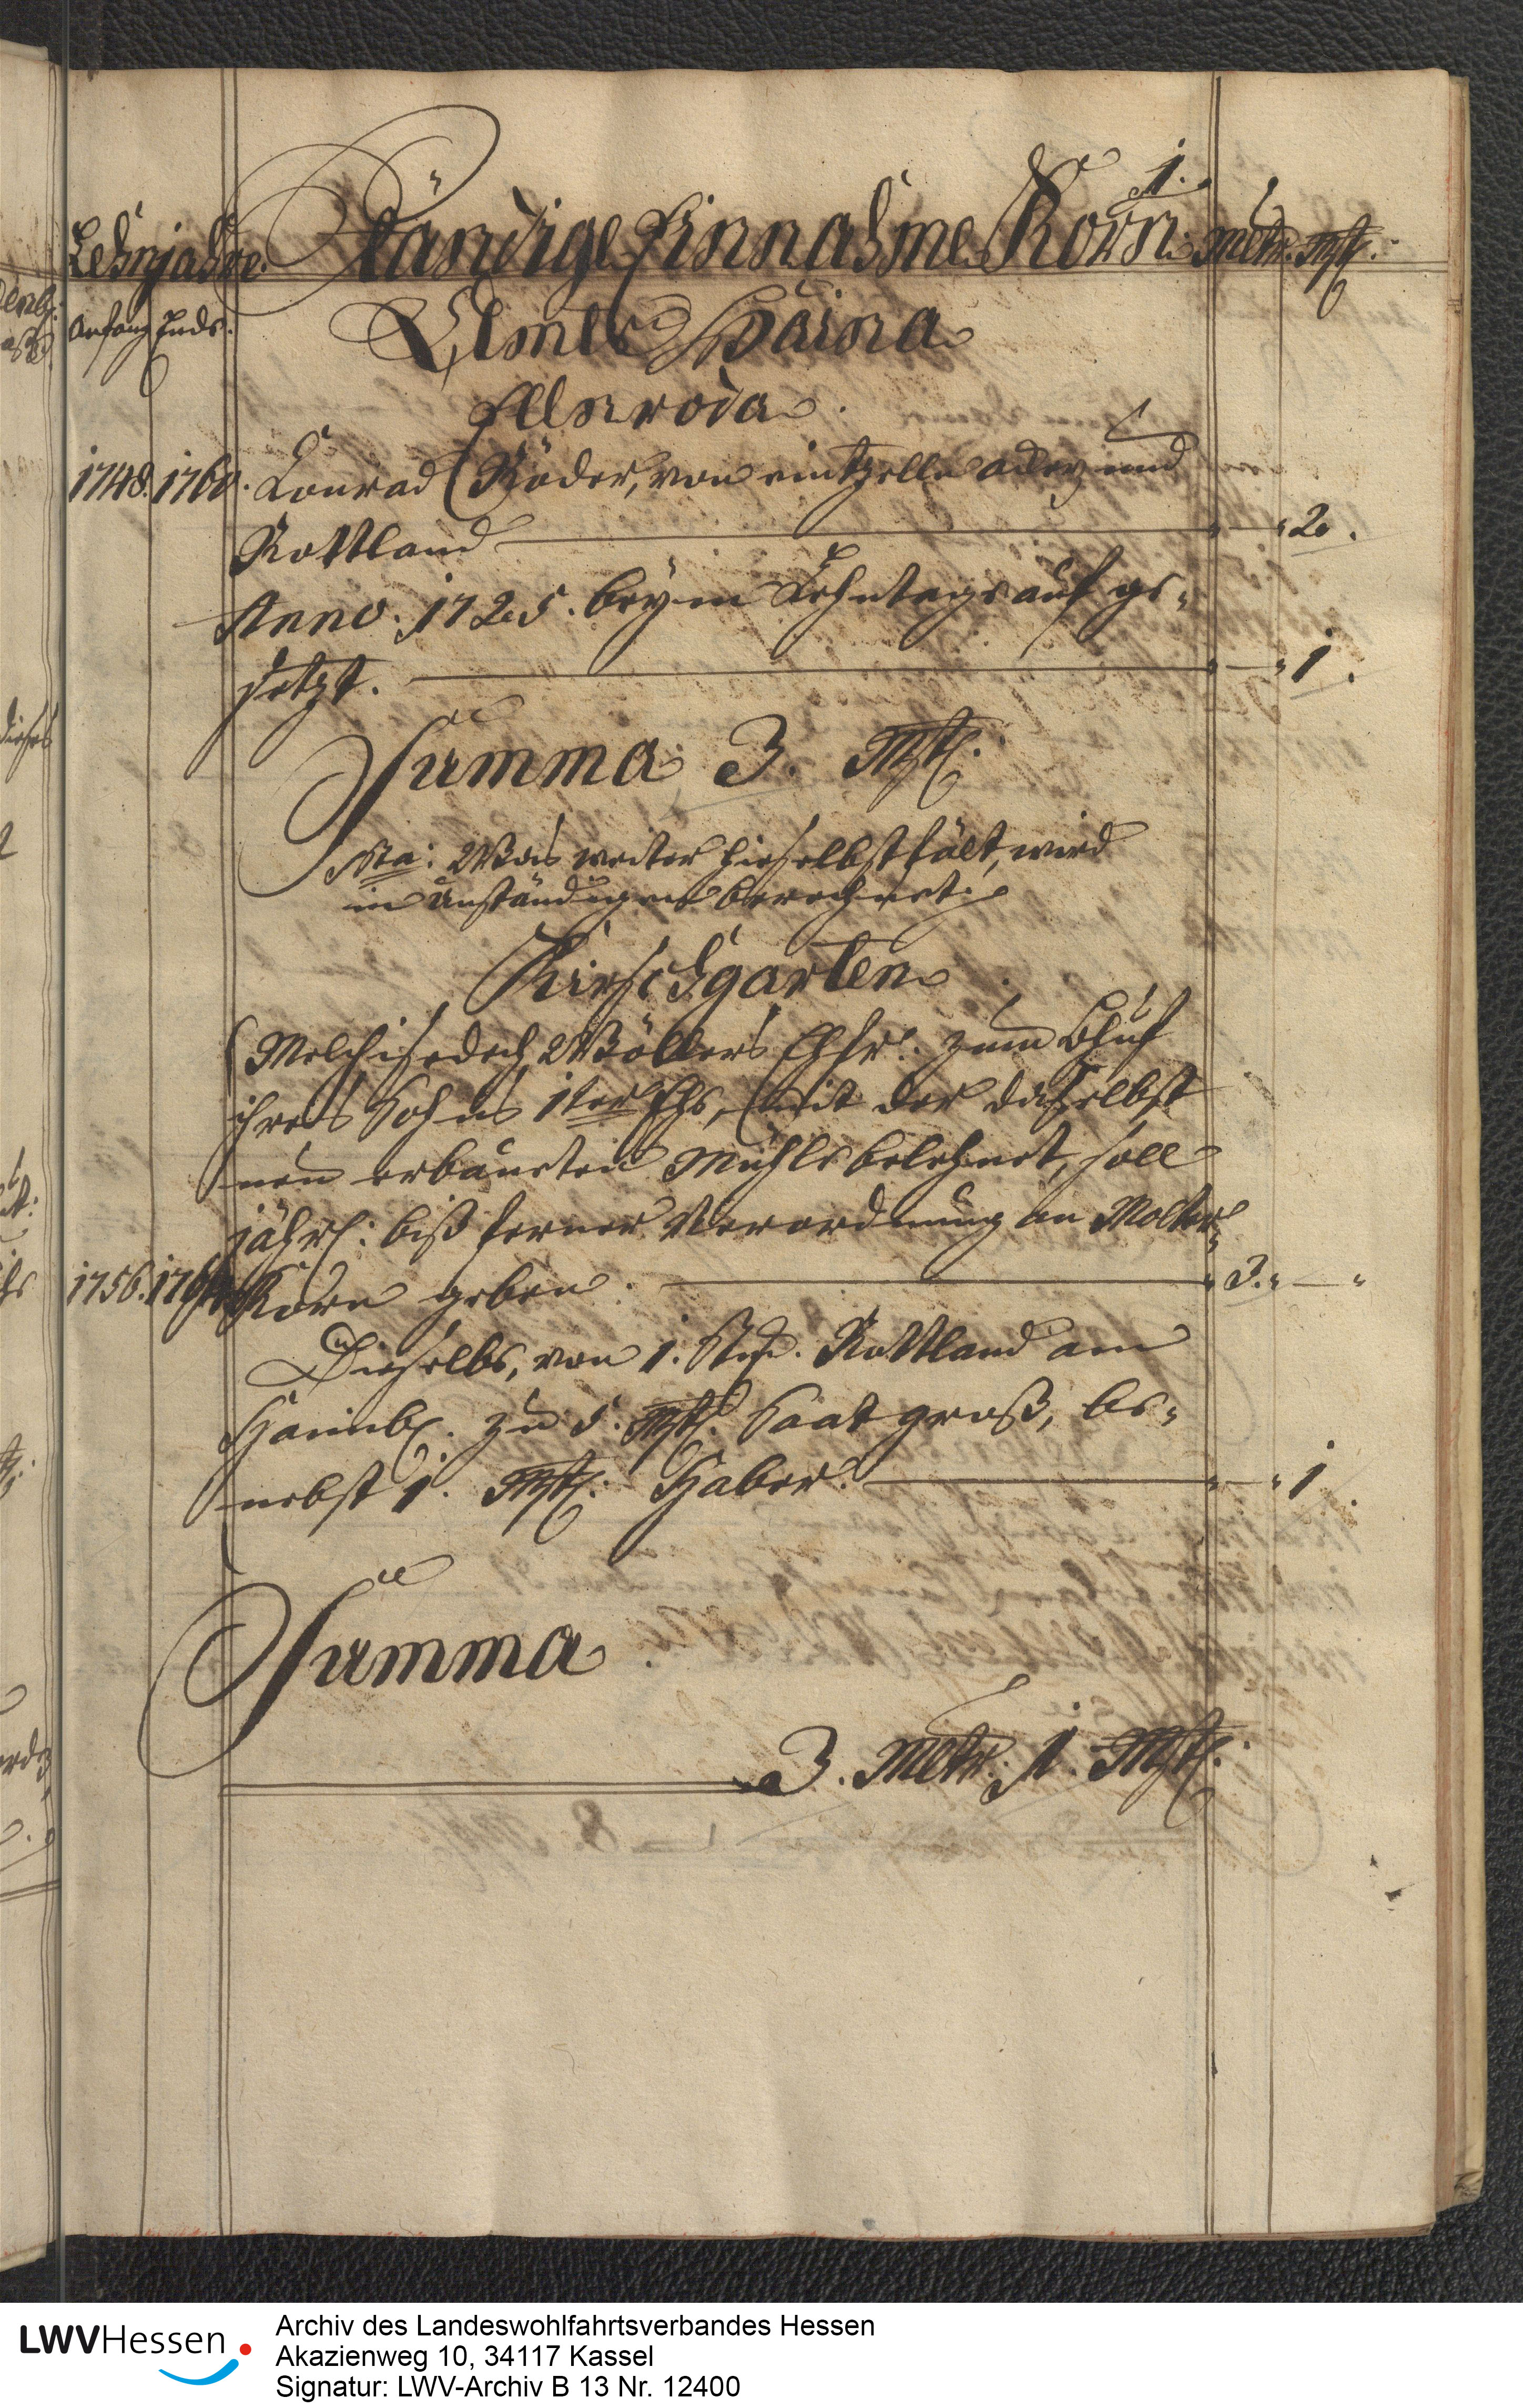 1.
Lehnjahre. Ständige Einnahme Korn. Mltr. Mß.
Anfang Ende.
Ambts Haina
Ellnroda.
1748. 1760. Conrad Röder, von eintzelln acker und
Rottland " — " 2.
Anno. 1725. beym Lehntage auf ge-
setzt. " — " 1.
Summa 3. Mß.
Nta: Was weiter hieselbst fält, wird
im Unständigen berechnet.
Kirschgarten
Melchisedech Möllers Ehfr: zum Behuf
ihres Sohns 1ter Ehe, mit der daselbst
neu erbaueten Mühle belehnet, soll
jährl: biß ferner Verordnung an Molter-
1756. Korn geben. " 3. " — "
Dieselbe, von 1. Stk. Rottland am
Hainb. zu 5. Mß. Saat groß, be-
nebst 1. Mß. Haber. " — " 1.
Summa.
3. Mltr. 1. Mß.
LWVHessen
Archiv des Landeswohlfahrtsverbandes Hessen
Akazienweg 10, 34117 Kassel
Signatur: LWV-Archiv B 13 Nr. 12400